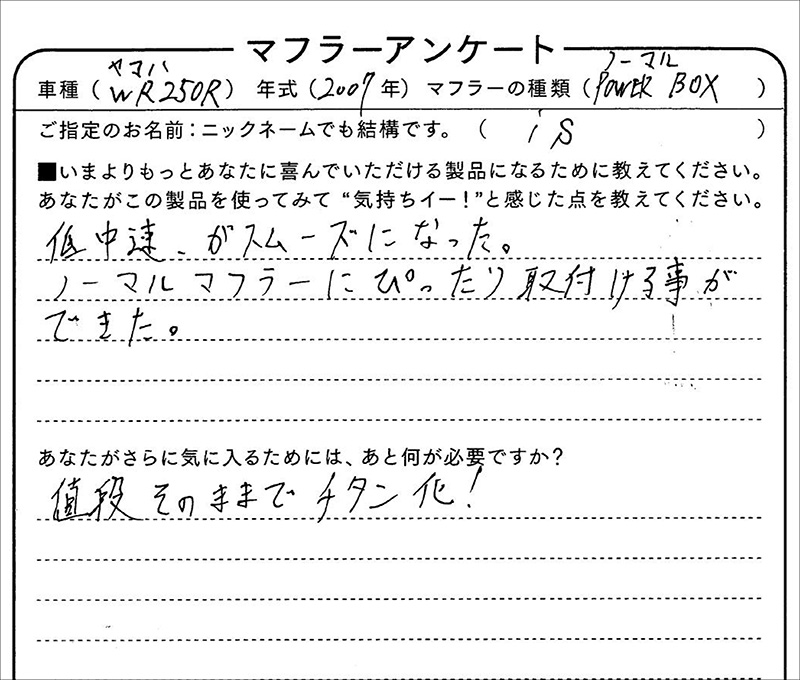 マフラーアンケート
ヤマハ ノーマル
車種（WR250R） 年式（2007年） マフラーの種類（POWER BOX ）
ご指定のお名前：ニックネームでも結構です。（ is ）
■いまよりもっとあなたに喜んでいただける製品になるために教えてください。
あなたがこの製品を使ってみて“気持ちイー！”と感じた点を教えてください。
低中速、がスムーズになった。
ノーマルマフラーにぴったり取付ける事が
できた。
あなたがさらに気に入るためには、あと何が必要ですか？
値段そのままでチタン化！